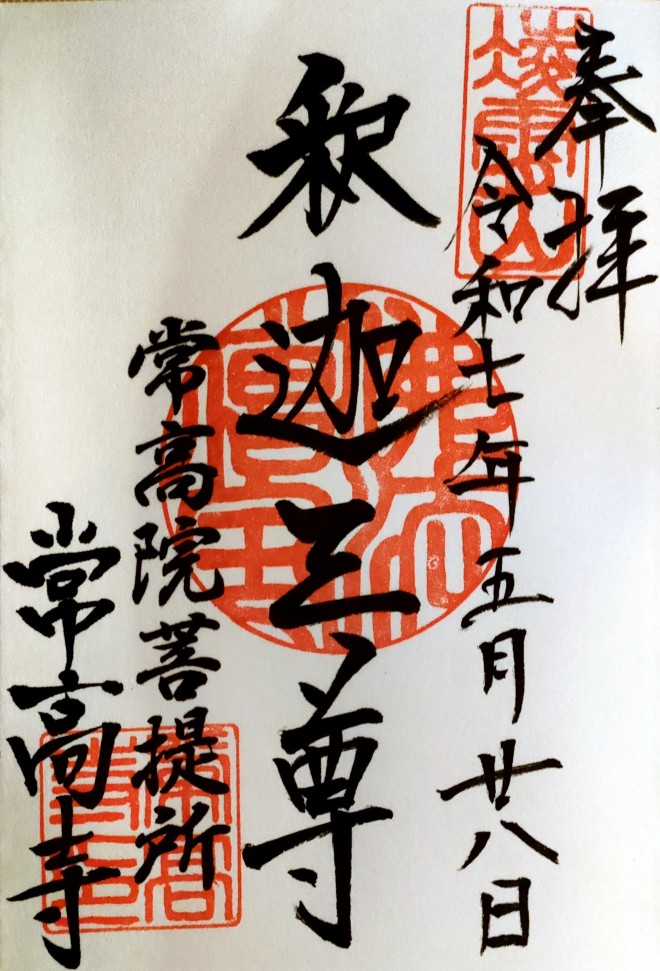 奉拝
令和七年五月廿八日
釈迦三尊
常高院菩提所
常高寺